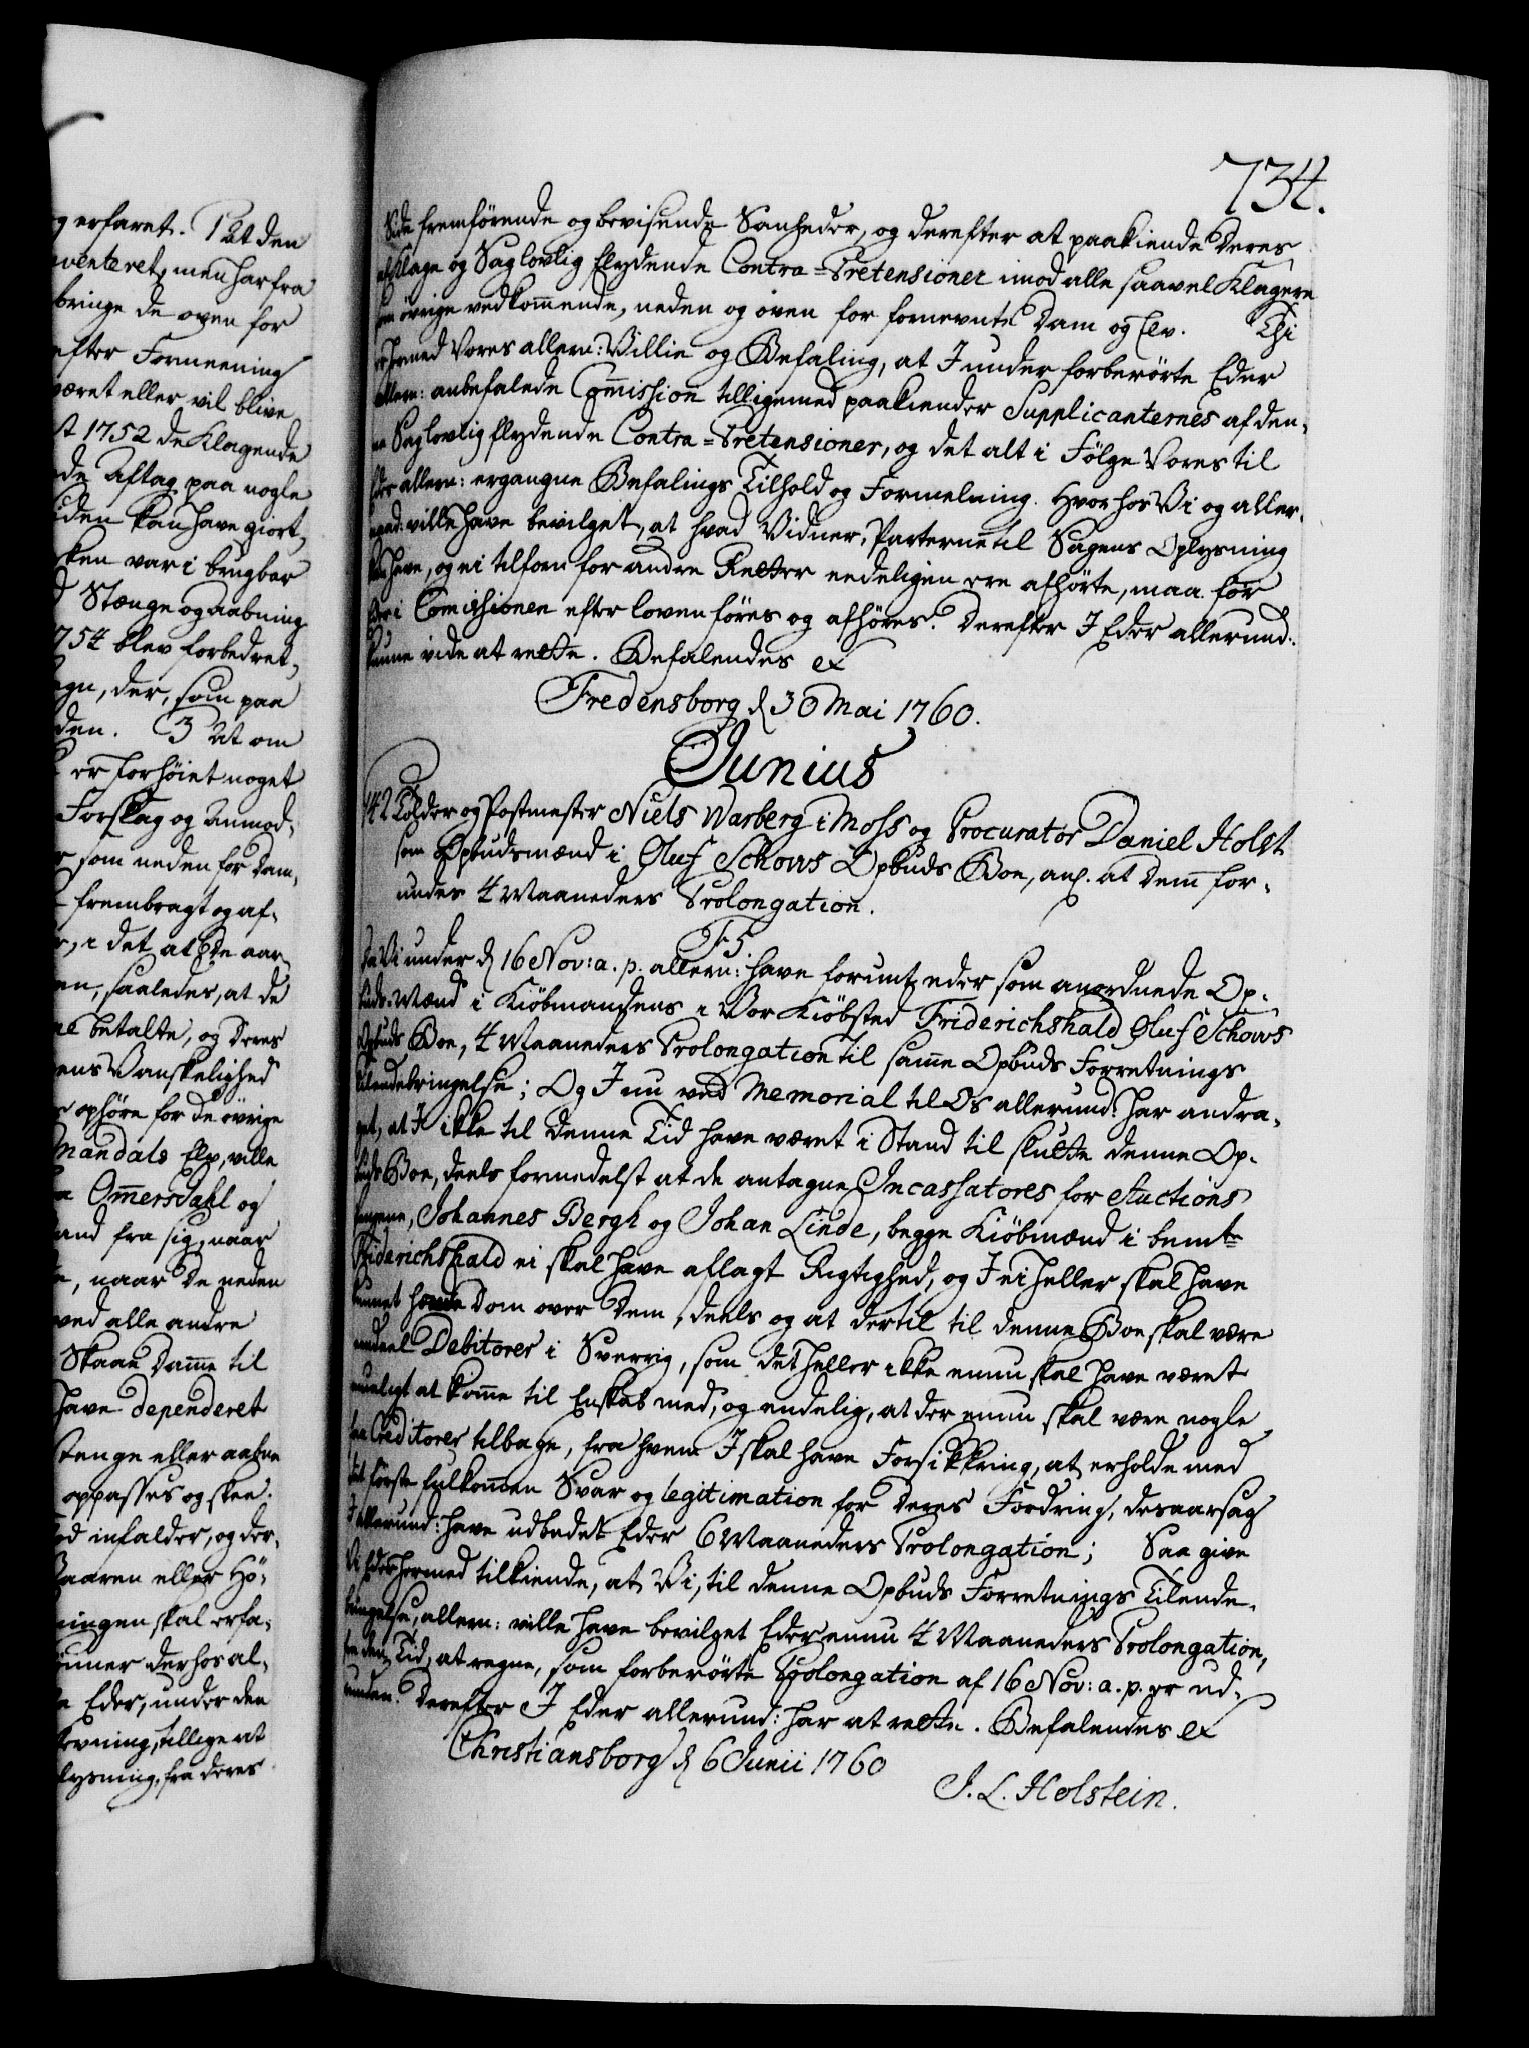 g erfaret. 1 At den
venteret, men har fra
bringe de oven for
efter Formeening
været eller vil blive
st 1752 de Klagende
de Aftag paa nogle
iden kan have giort,
sken var i brugbar
Stænge og aabning
754 blev forbedret,
egn, der, som paa
den. 3 At om
er forhöiet noget
Forslag og Anmod-
r som neden for Dam-
frembragt og af-
r, i det at de aar-
en, saaledes, at de
ne betalte, og deres
ens Vanskelighed
ophöre for de övrige
Mandals Elv, ville
a Ommersdahl og
and fra sig, naar
e, naar de neden
ved alle andre
Skaae Damme til
have dependeret
stenge eller aabne
oppasses og skee.
od infalder, og der-
Vaaren eller Hö-
ningen skal erfa-
inner derhos al-
e Eder, under den
kevning, tillige at
lysning, fra deres
734.
Side fremförende og bevisende Sanheder, og derefter at paakiende Deres
af Klage og Saglovlig flydende Contra-Prætensioner imod alle saavel Klagere
som övrige vedkommende, neden og oven for fornevnte Dam og Elv. Thi
er hermed Vores allern: Villie og Befaling, at I under forberörte Eder
allern: anbefalede Commission tilligemed paakiender Supplicanternes af den-
ne Saglovlig flydende Contra-Prætensioner, og det alt i Fölge Vores til
Eder allern: ergangne Befalings Tilhold og Formelning. Hvorhos Vi og aller-
naad: ville have bevilget, at hvad Vidner, Parterne til Sagens Oplysning
kan have, og ei tilforn for andre Retter eedeligen ere afhörte, maa for
Eder i Commissionen efter loven föres og afhöres. Derefter I Eder allerund:
kunne vide at rette. Befalendes etc
Fredensborg d 30 Mai 1760.
Junius
142 Tolder og Postmester Niels Warberg i Moss og Procurator Daniel Holst
som Opbudsmænd i Oluf Schows Opbuds Boe, anl. at Dem for-
undes 4 Maaneders Prolongation.
F5.
Da Vi under d 16 Nov: a. p. allern: have forunt eder som anordnede Op-
buds-Mænd i Kiöbmandens i Vor Kiöbsted Friderichshald Oluf Schows
Opbuds Boe, 4 Maaneders Prolongation til samme Opbuds Forretnings
tilendebringelse; Og I nu ved Memorial til Os allerund: har andra-
get, at I ikke til denne Tid have været i Stand til slutte denne Op-
buds Boe, deels formedelst at de antagne Incassatores for Auctions
pengene, Johannes Bergh og Johan Linde, begge Kiöbmænd i bemte
Friderichshald ei skal have aflagt Rigtighed, og I ei heller skal have
kunnet hænte Dom over Dem, deels og at dertil til denne Boe skal være
endeel Debitorer i Sverrig, som det heller ikke ennu skal have været
mueligt at komme til Enskab med, og endelig, at der ennu skal være nogle
faa Creditorer tilbage, fra hvem I skal have Forsikkring, at erholde med
det förste fulkommen Svar og legitimation for deres Fordring, desaarsag
I allerund: have udbedet Eder 6 Maaneders Prolongation; Saa give
Vi Eder hermed tilkiende, at Vi, til denne Opbuds Forretnings Tilende-
bringelse, allern: ville have bevilget Eder ennu 4 Maaneders Prolongation,
fra den Tid, at regne, som forberörte Prolongation af 16 Nov: a. p. er ud-
runden. Derefter I Eder allerund: har at rette. Befalendes etc
Christiansborg d 6 Junii 1760
J. L. Holstein.